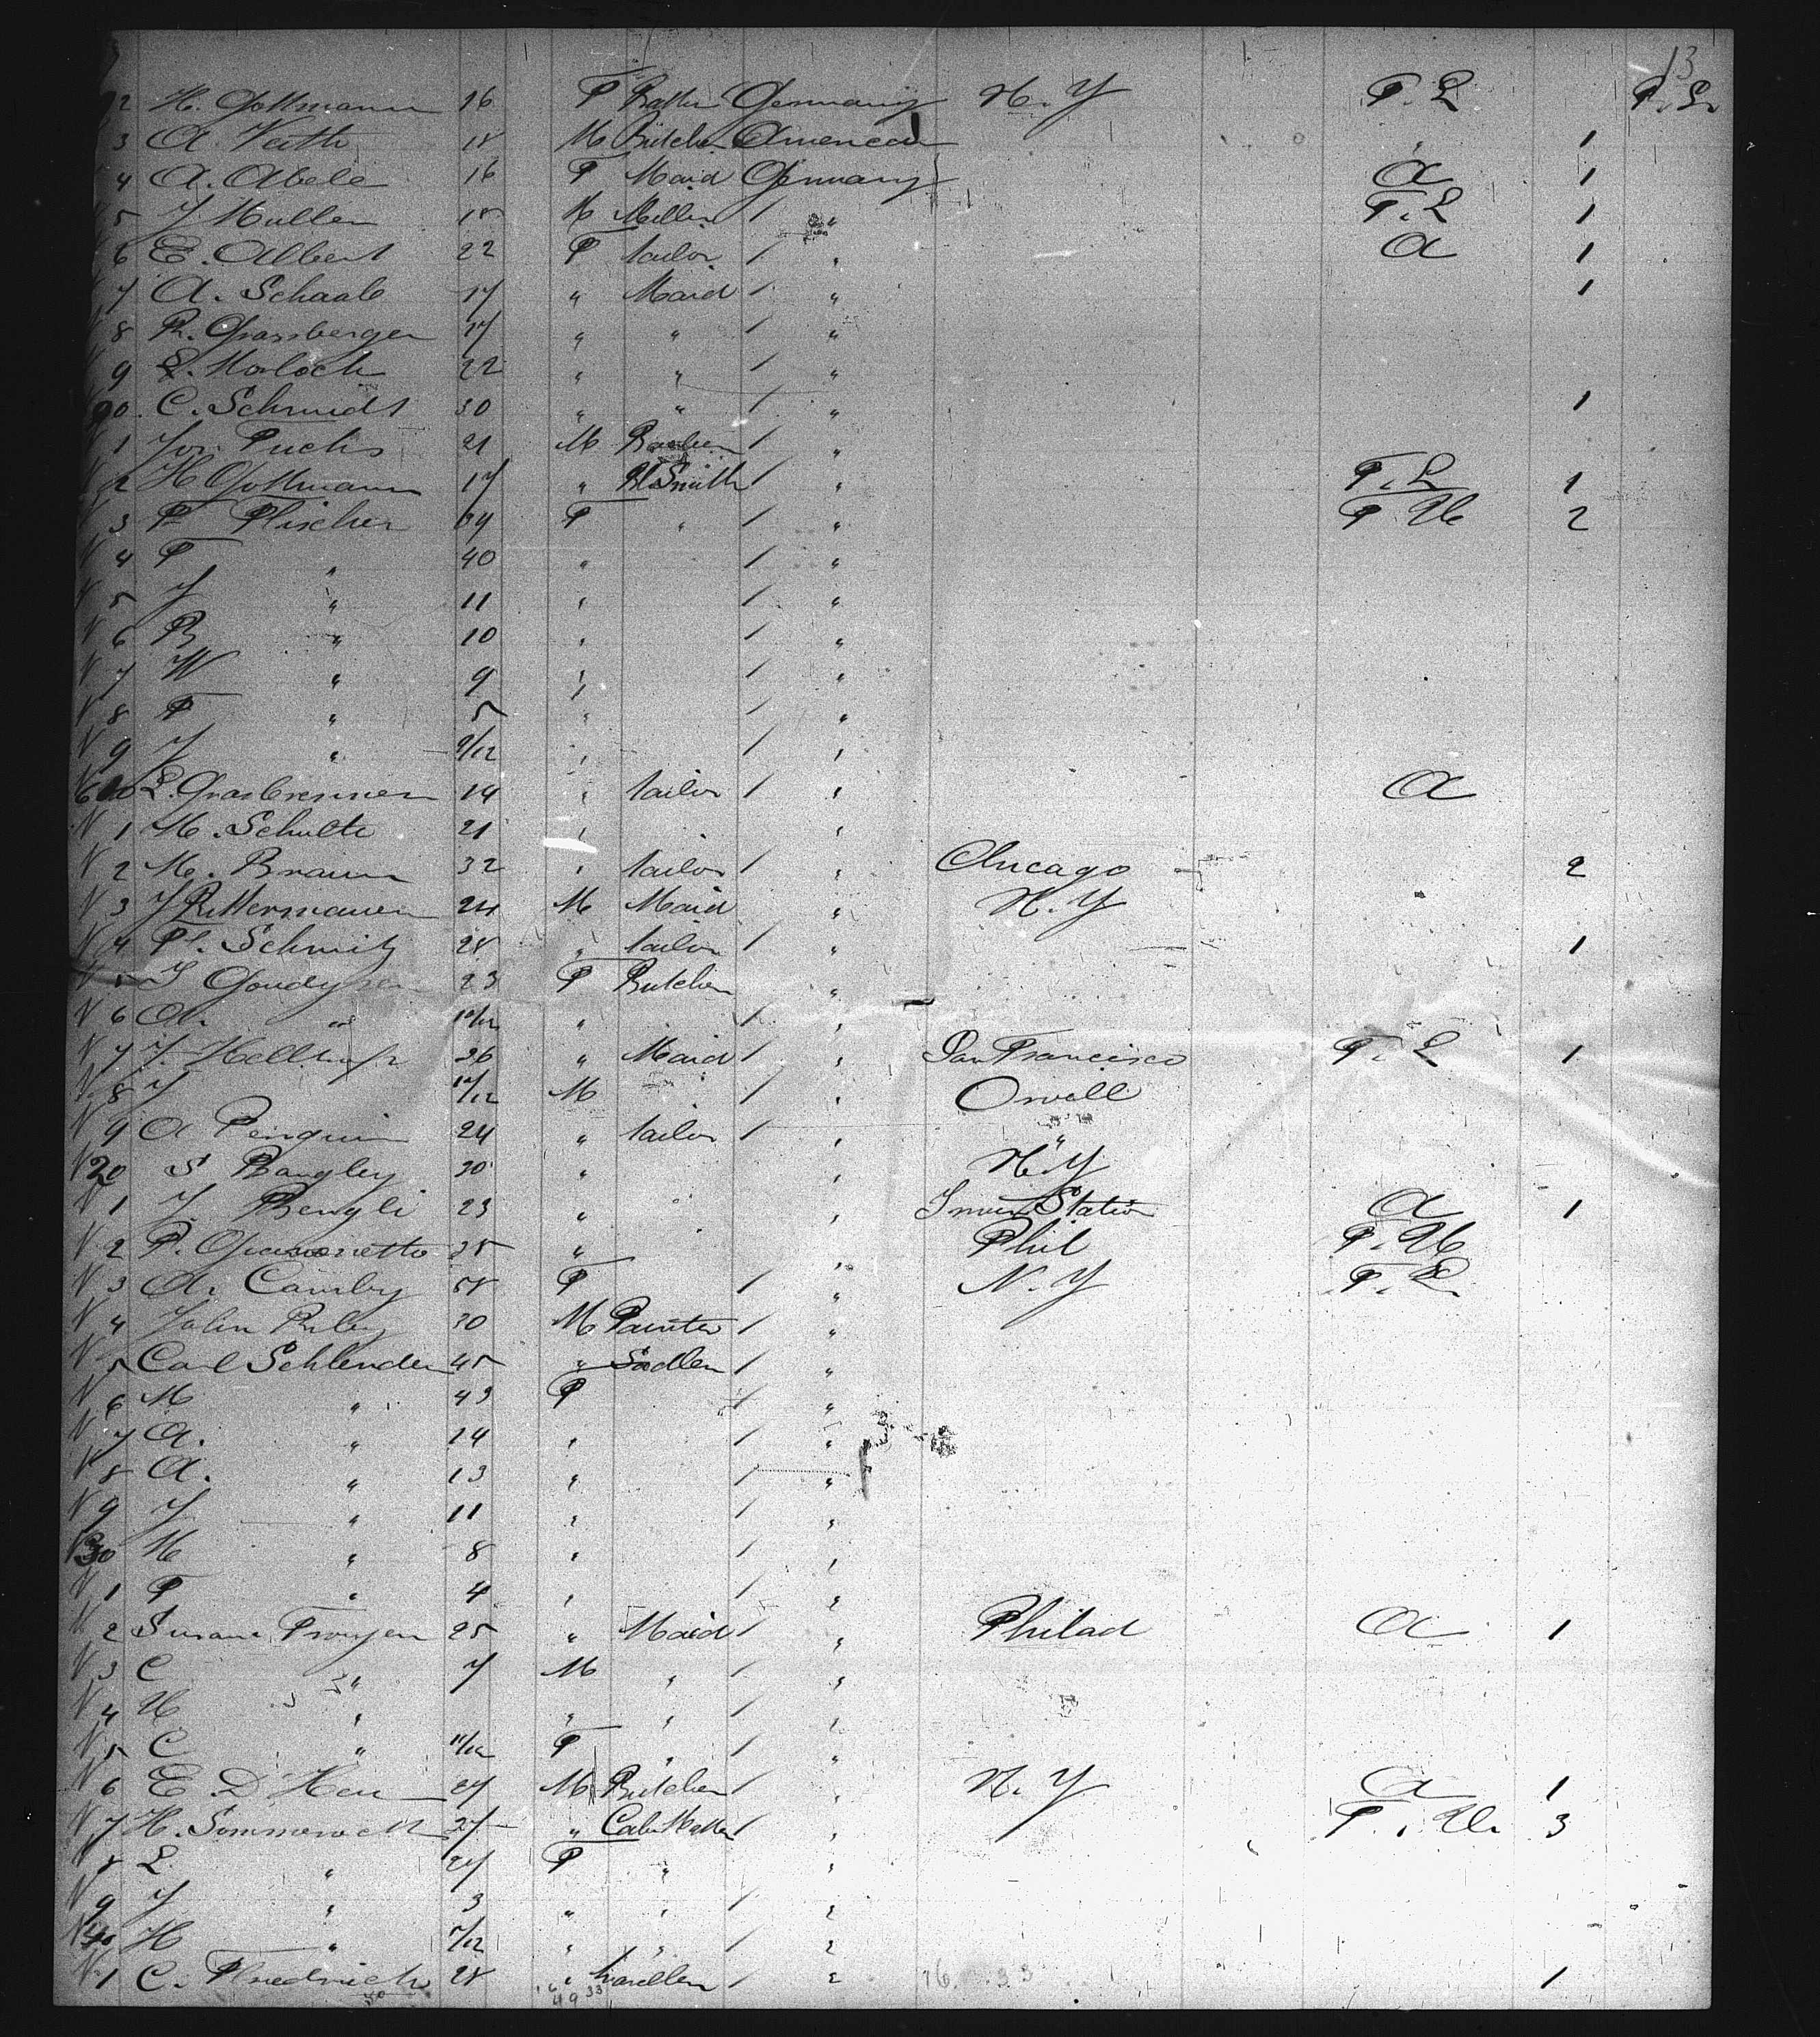 13
2 H. Gottmann 16 F Germany N. Y F. L F. L.
3 A. Veith 18 M Butcher American " 1
4 A. Abele 16 F Maid Germany A 1
5 J Muller 18 M Miller / " F. L 1
6 E. Albert 22 F tailor / " A 1
7 A. Schaab 17 " Maid / " 1
8 R. Grassberger 17 " " / "
9 L. Morloch 22 " " / "
90. C. Schmidt 30 " " / " 1
1 Jos. Fuchs 21 M / "
2 H Gottmann 17 " Bl Smith / " F. L 1
N 3 F Flischer 39 F " / " F. U 2
N 4 F " 40 " / "
N 5 J " 11 " / "
N 6 B " 10 " / "
N 7 W " 9 " / "
N 8 F " 5 " / "
N 9 J " 9/12 " / "
N 600 L. Grasbrenner 14 " tailor / " A
N 1 M. Schulte 21 " "
N 2 M. Braun 32 " tailor / " Chicago 2
N 3 J 24 M Maid " N. Y
N 4 Pt. Schmitz 28 " tailor / " 1
N 5 23 F Butcher "
N 6 A. " 10/12 " / "
N 7 J. 26 " Maid / " San Francisco F. L 1
N 8 J 11/12 M / " Orvell
N 9 A Penquin 24 " tailor / " "
N 20 S Bangley 30 " " N. Y
N 1 J. Bengli 23 " " Station A 1
N 2 P. 35 " " Phil F. U
N 3 A. Camby 58 F / " N. Y F. L.
N 4 John Riley 30 M Painter / "
N 5 Carl Schlender 45 " Sadler / "
N 6 M " 43 F / "
N 7 A. " 14 " / "
N 8 A. " 13 " / "
N 9 J " 11 " / "
N 30 M " 8 " / "
N 1 F " 4 " / "
N 2 Susane 25 " Maid / " Philad A 1
N 3 C " 7 M " / "
N 4 N " " " / "
N 5 C " 11/12 F " / "
N 6 E. D 27 M Butcher / " N. Y A 1
N 7 H. 27 " / " F. U. 3
N 8 L. " 27 F " "
N 9 J " 3 " " / "
N 40 H " 7/12 " " / "
N 1 C. Fliedrich 28 " / " 1